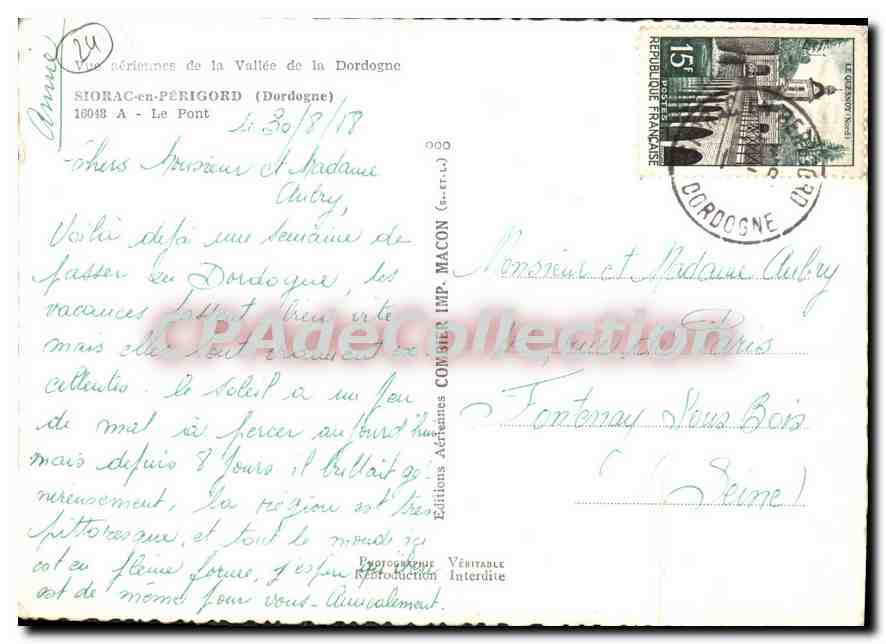 24
Annie
Vue aériennes de la Vallée de la Dordogne
SIORAC-en-PÉRIGORD (Dordogne)
16048 A - Le Pont
le 30/8/58
Chers Monsieur et Madame
Aubry,
Voilà déjà une semaine de
passer en Dordogne, les
vacances passent bien vite
mais elles sont vraiment ex-
cellentes. Le soleil a un peu
de mal à percer aujourd'hui
mais depuis 8 jours il brillait gé-
néreusement, la région est très
pittoresque, et tout le monde ici
est en pleine forme, j'espère qu'il en
est de même pour vous - Amicalement.
Editions Aériennes COMBIER IMP. MACON (S.-ET-L.)
PHOTOGRAPHIE VÉRITABLE
Reproduction Interdite
15F
POSTES
REPUBLIQUE FRANÇAISE
LE QUESNOY (Nord)
DORDOGNE
Monsieur et Madame Aubry
rue de Paris
Fontenay Sous Bois
(Seine)
CPAdeCollection.com